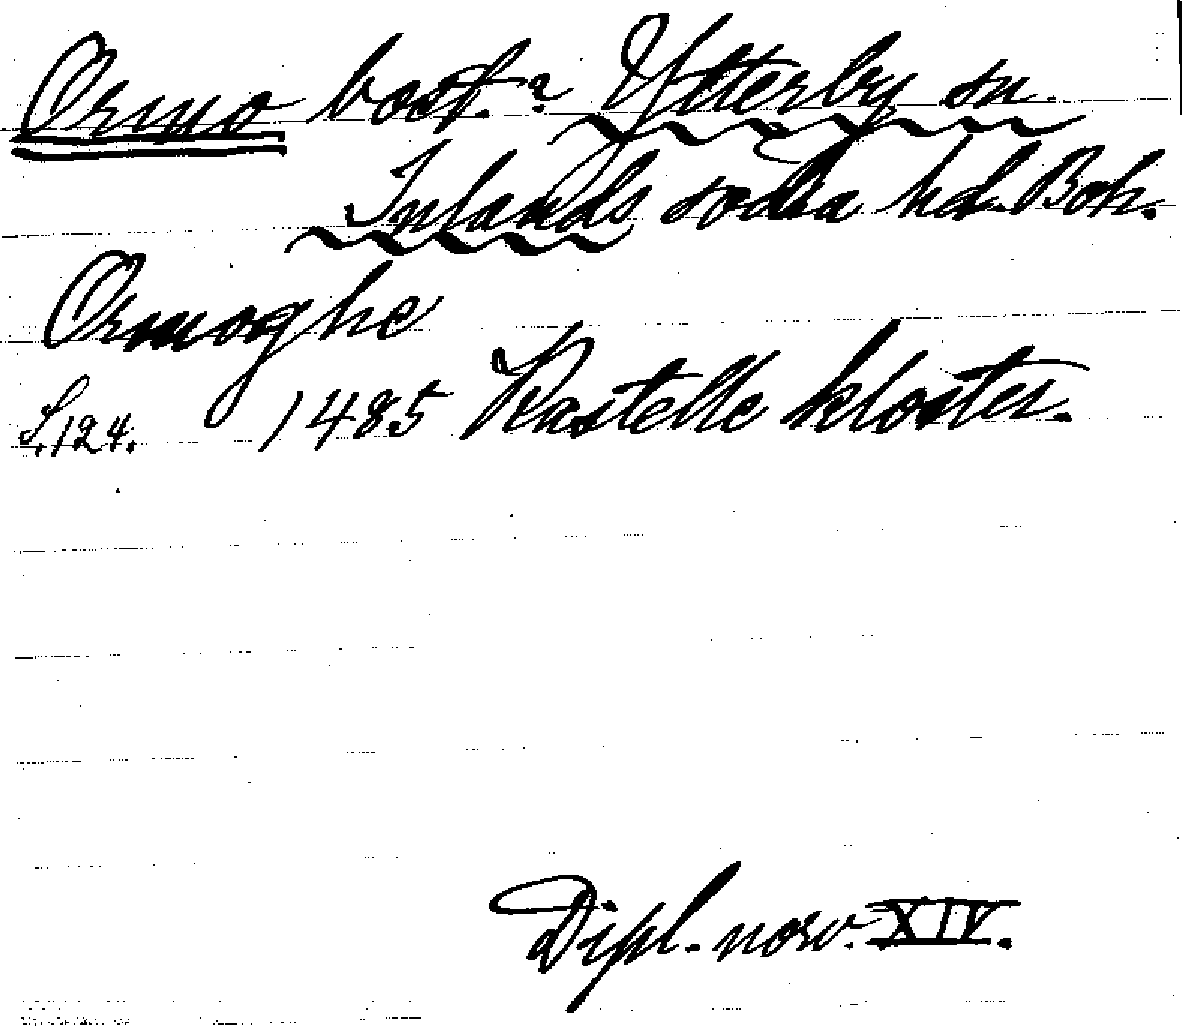 Ormo bost.? Ytterby sn.
Inlands södra hd. Boh.
Ormoghe
S. 124. 1485 Kastelle kloster.
Dipl. norv. XIV.